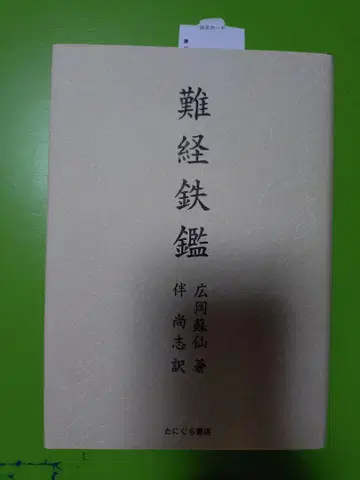 難経鉄鑑
広岡蘇仙 著
伴 尚志 訳
たにぐち書店